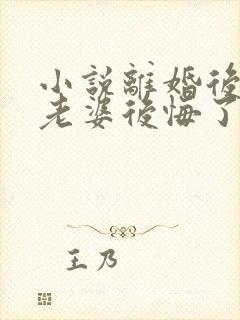 小說離婚後
老婆後悔了
王乃